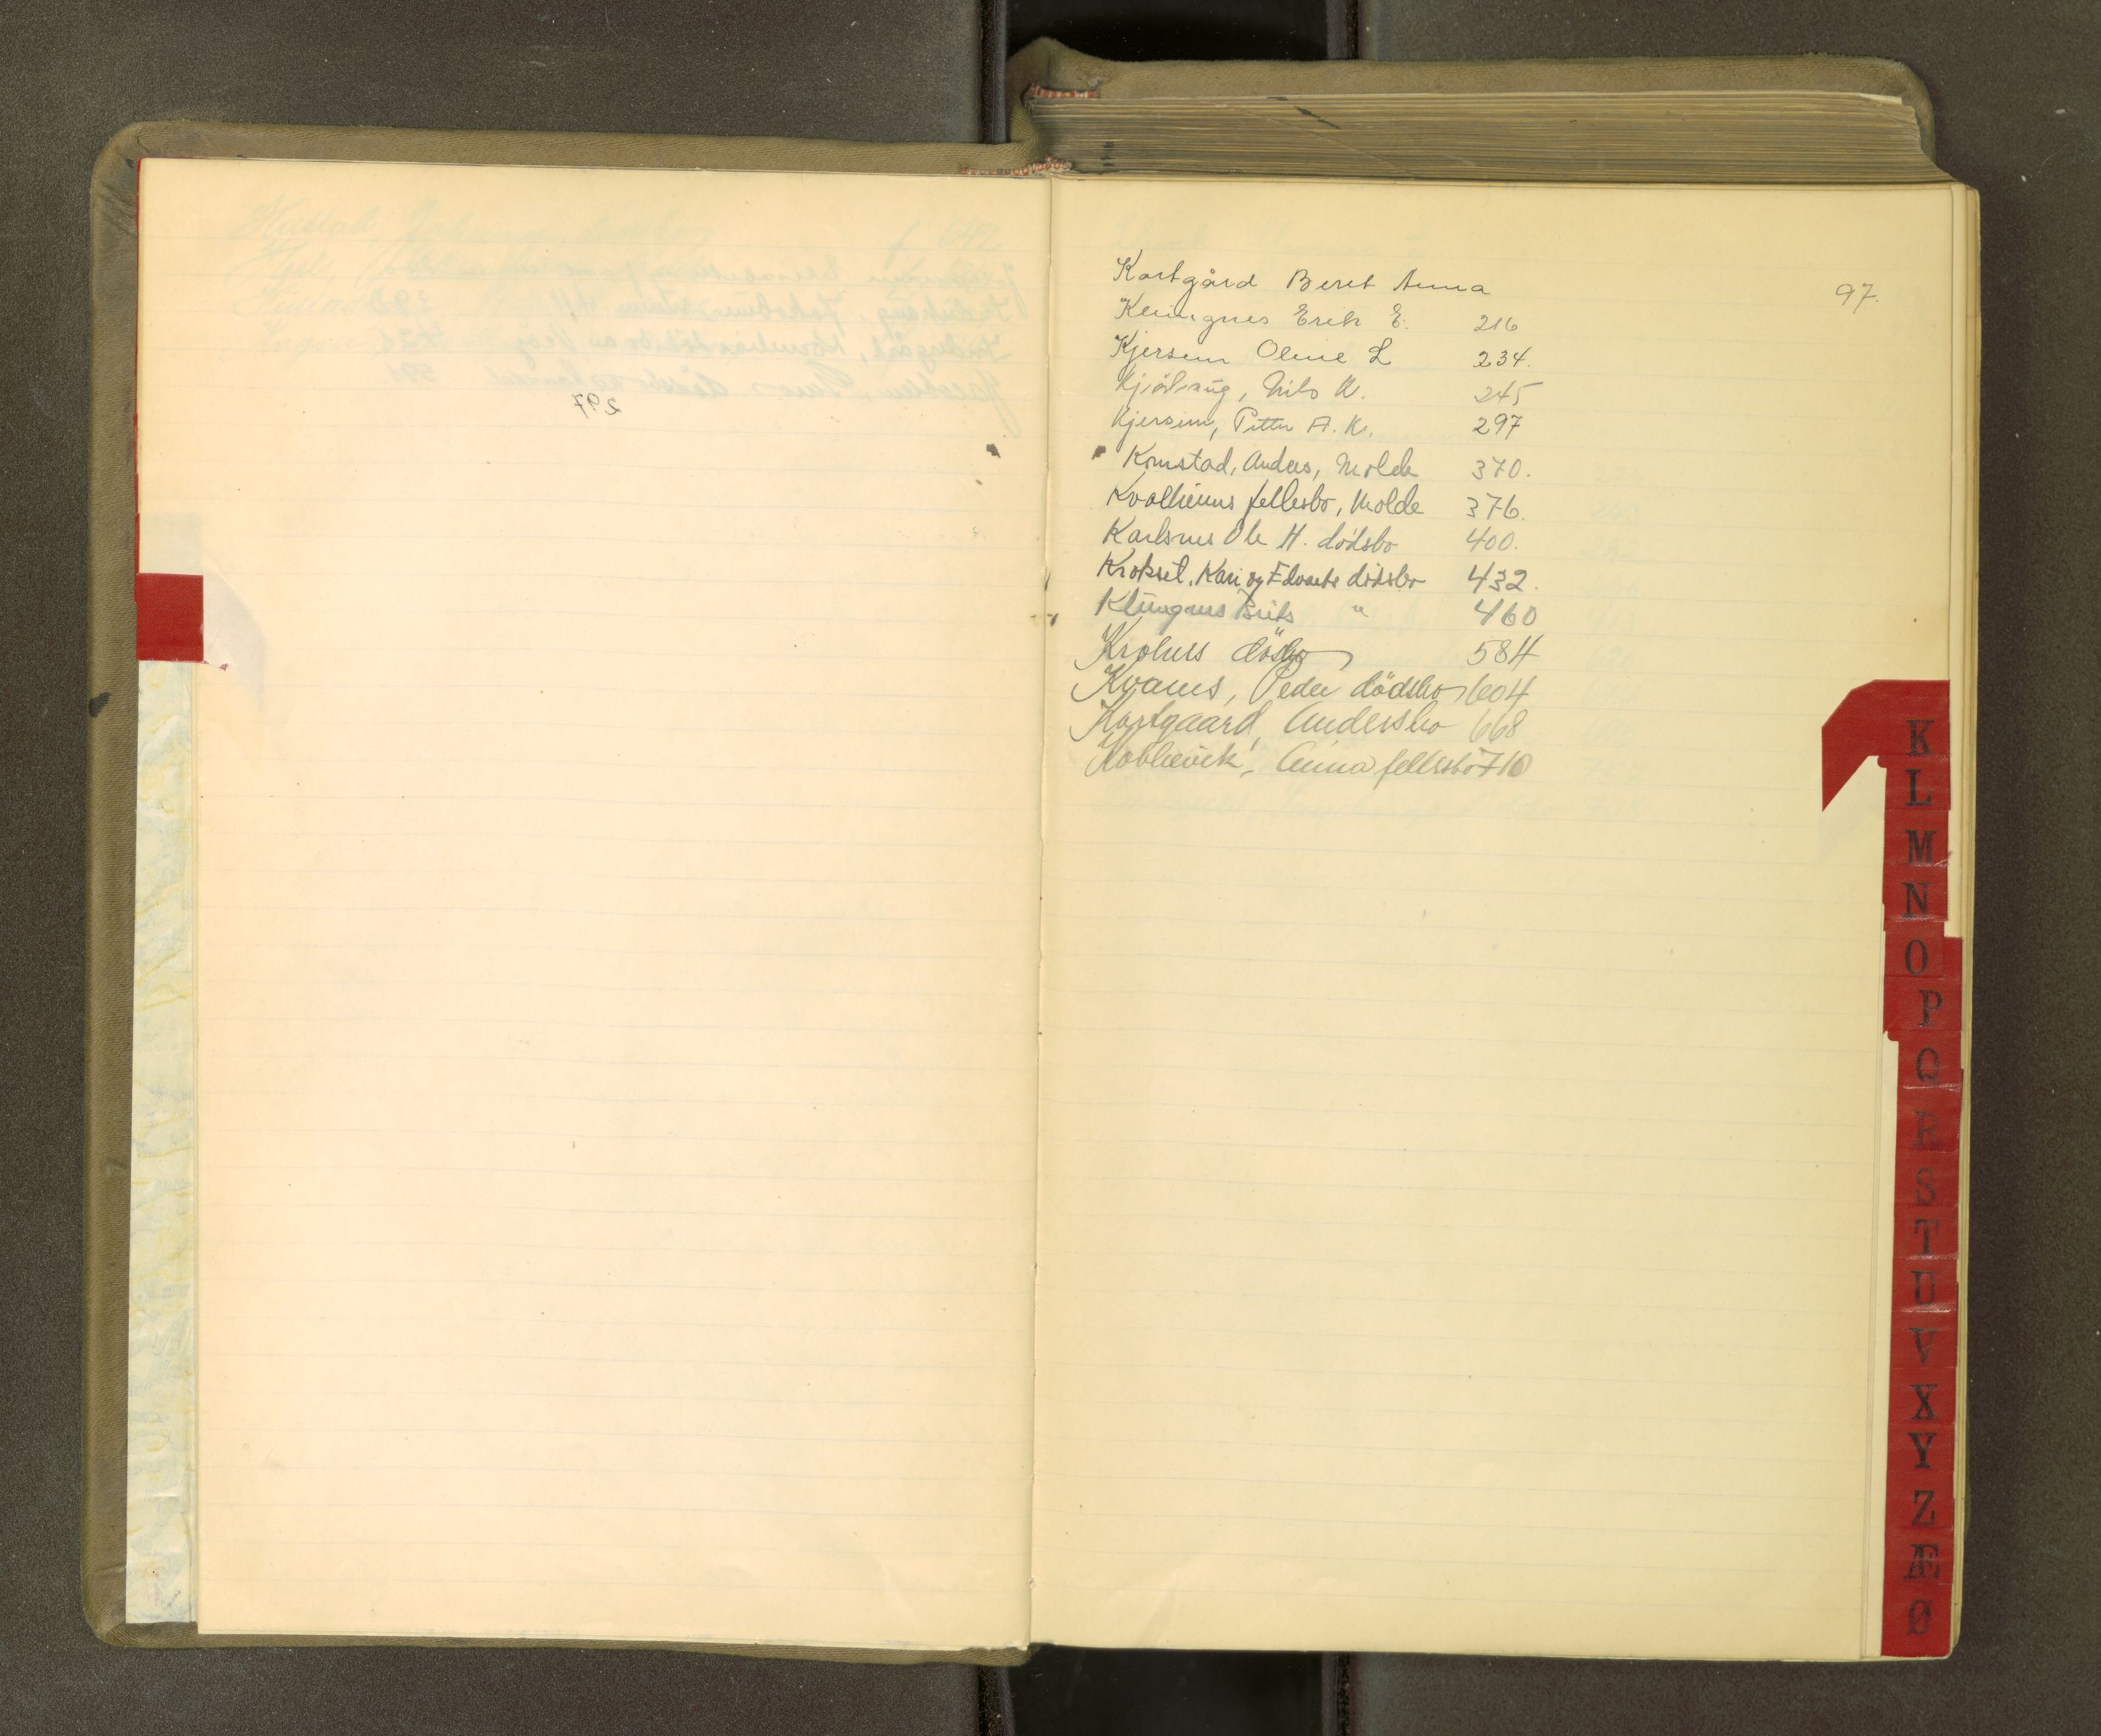 297
Kortgård Beret Anna 97.
Klungnes Erik E. 216
Kjersem Oline L 234.
Nils K. 245
Kjersem, Petter A. K. 297
Komstad, Anders, Molde 370.
Kvalheims fellesbo, Molde 376.
Karlsnes Ole H. dødsbo 400.
Krokset, Kari og Edvarts dødsbo 432.
Klungnes Brits " 460
dödsbo 584
Kvarnes, Peder dödsbo 604
Kortgaard, Andersbo 668
Anna fellesbo 710
K
L
M
N
O
P
Q
R
S
T
U
V
X
Y
Z
Æ
Ø